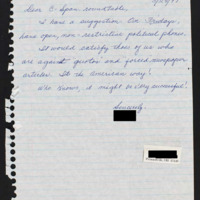 Dear C-Span roundtable,
I have a suggestion. On Fridays,
have open, non-restrictive political phones.
It would satisfy those of us who
are against quotas and forced newspaper
articles. It's the American way!
Who knows, it might be very successful!
Sincerely,